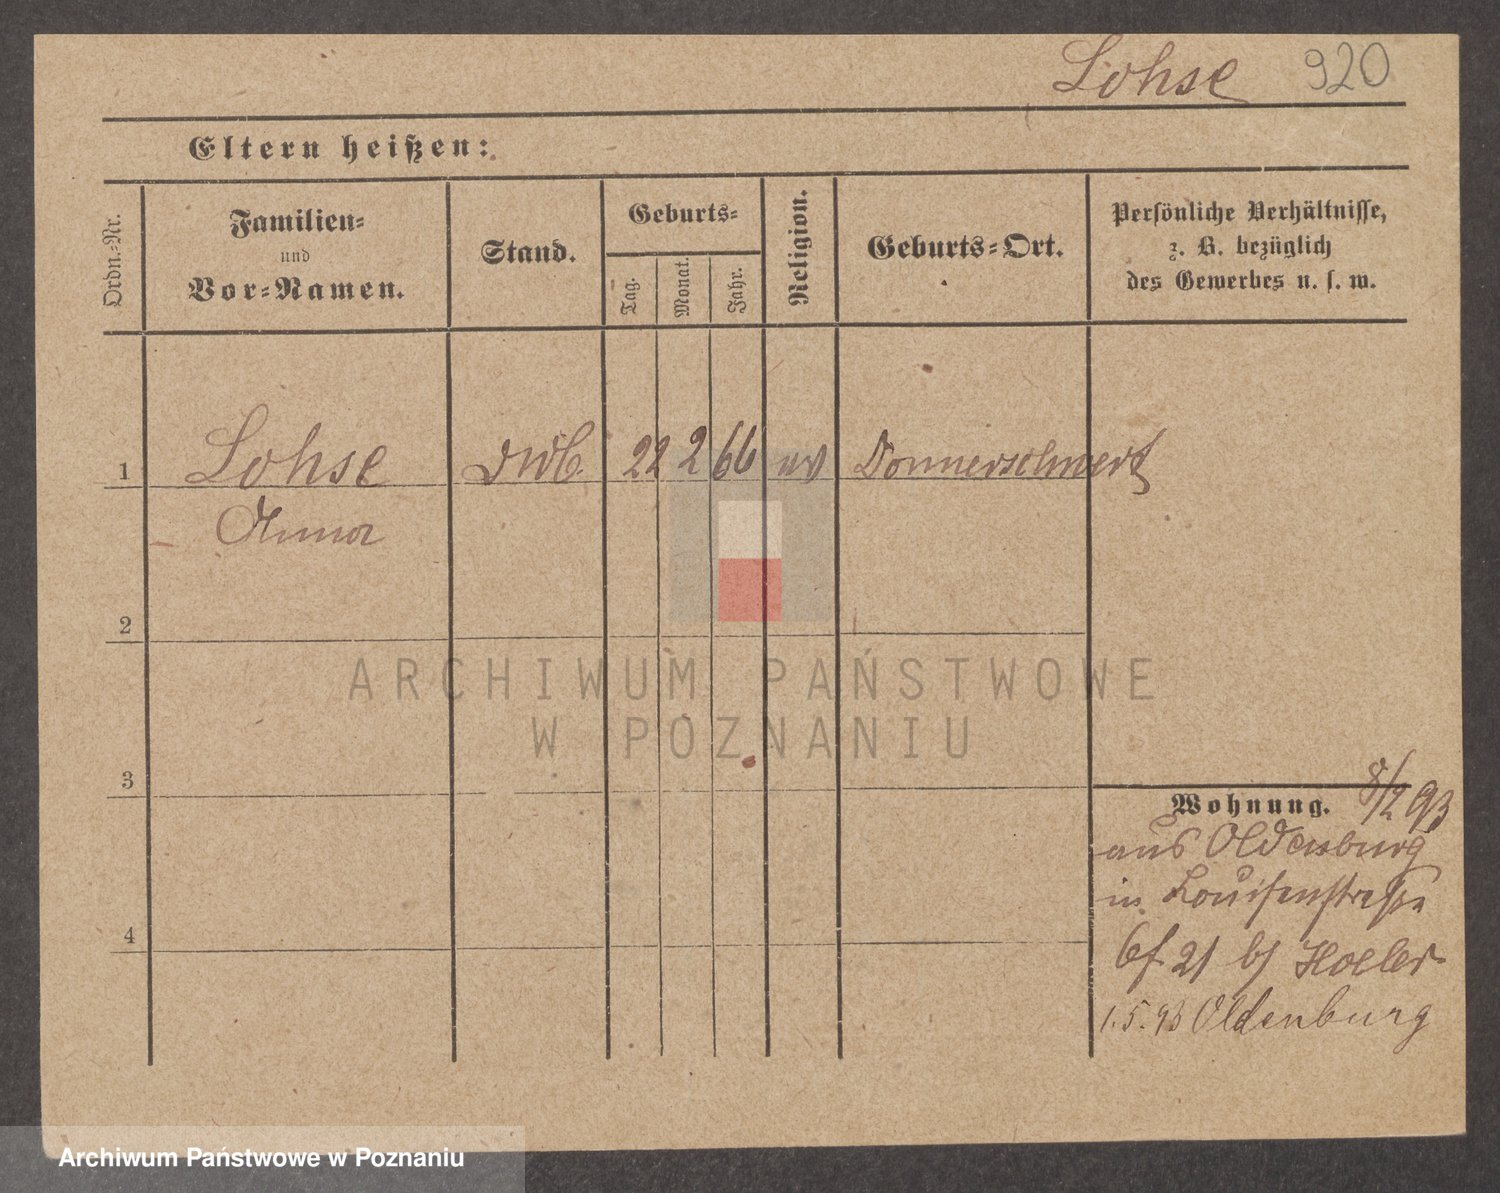 Lohse 920
Eltern heißen:
Ordn.-Nr.
Familien-
und
Vor-Namen.
Stand.
Geburts-
Tag.
Monat.
Jahr.
Religion.
Geburts-Ort.
Persönliche Verhältnisse,
z. B. bezüglich
des Gewerbes u. s. w.
1 Lohse 22 2 66 ev Donnerschwert
Anna
2
3
4
Wohnung. 8/2 93
aus Oldenburg
in Louisenstraße
21 b/
1.5.93 Oldenburg
ARCHIWUM PAŃSTWOWE
W POZNANIU
Archiwum Państwowe w Poznaniu